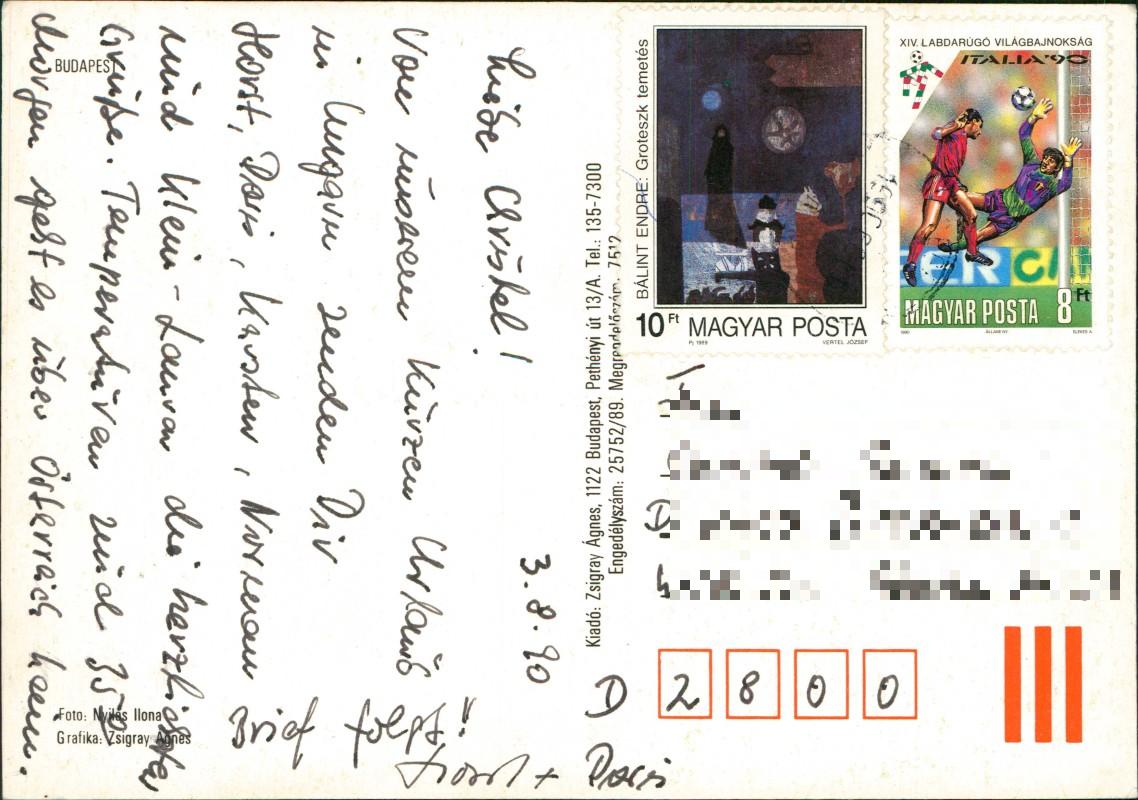 3.8.90
Liebe Christel!
Von unserem kurzen Urlaub
in Ungarn senden Dir
Horst, Doris, Karsten, Norman
und Klein-Laura die herzlichsten
Grüße. Temperaturen sind 35°
Morgen geht es über Österreich heim.
Brief folgt!
Horst + Doris
BUDAPEST
Foto: Nyilas Ilona
Grafika: Zsigray Ágnes
Kiadó: Zsigray Ágnes, 1122 Budapest, Pethényi út 13/A. Tel.: 135-7300
Engedélyszám: 25752/89. Megrendelőszám: 7512
BÁLINT ENDRE: Groteszk temetés
10 Ft MAGYAR POSTA
Pj 1989 VERTEL JÓZSEF
XIV. LABDARÚGÓ VILÁGBAJNOKSÁG
ITALIA'90
MAGYAR POSTA 8 Ft
1990 ÁLLAMI NY.
D 2800